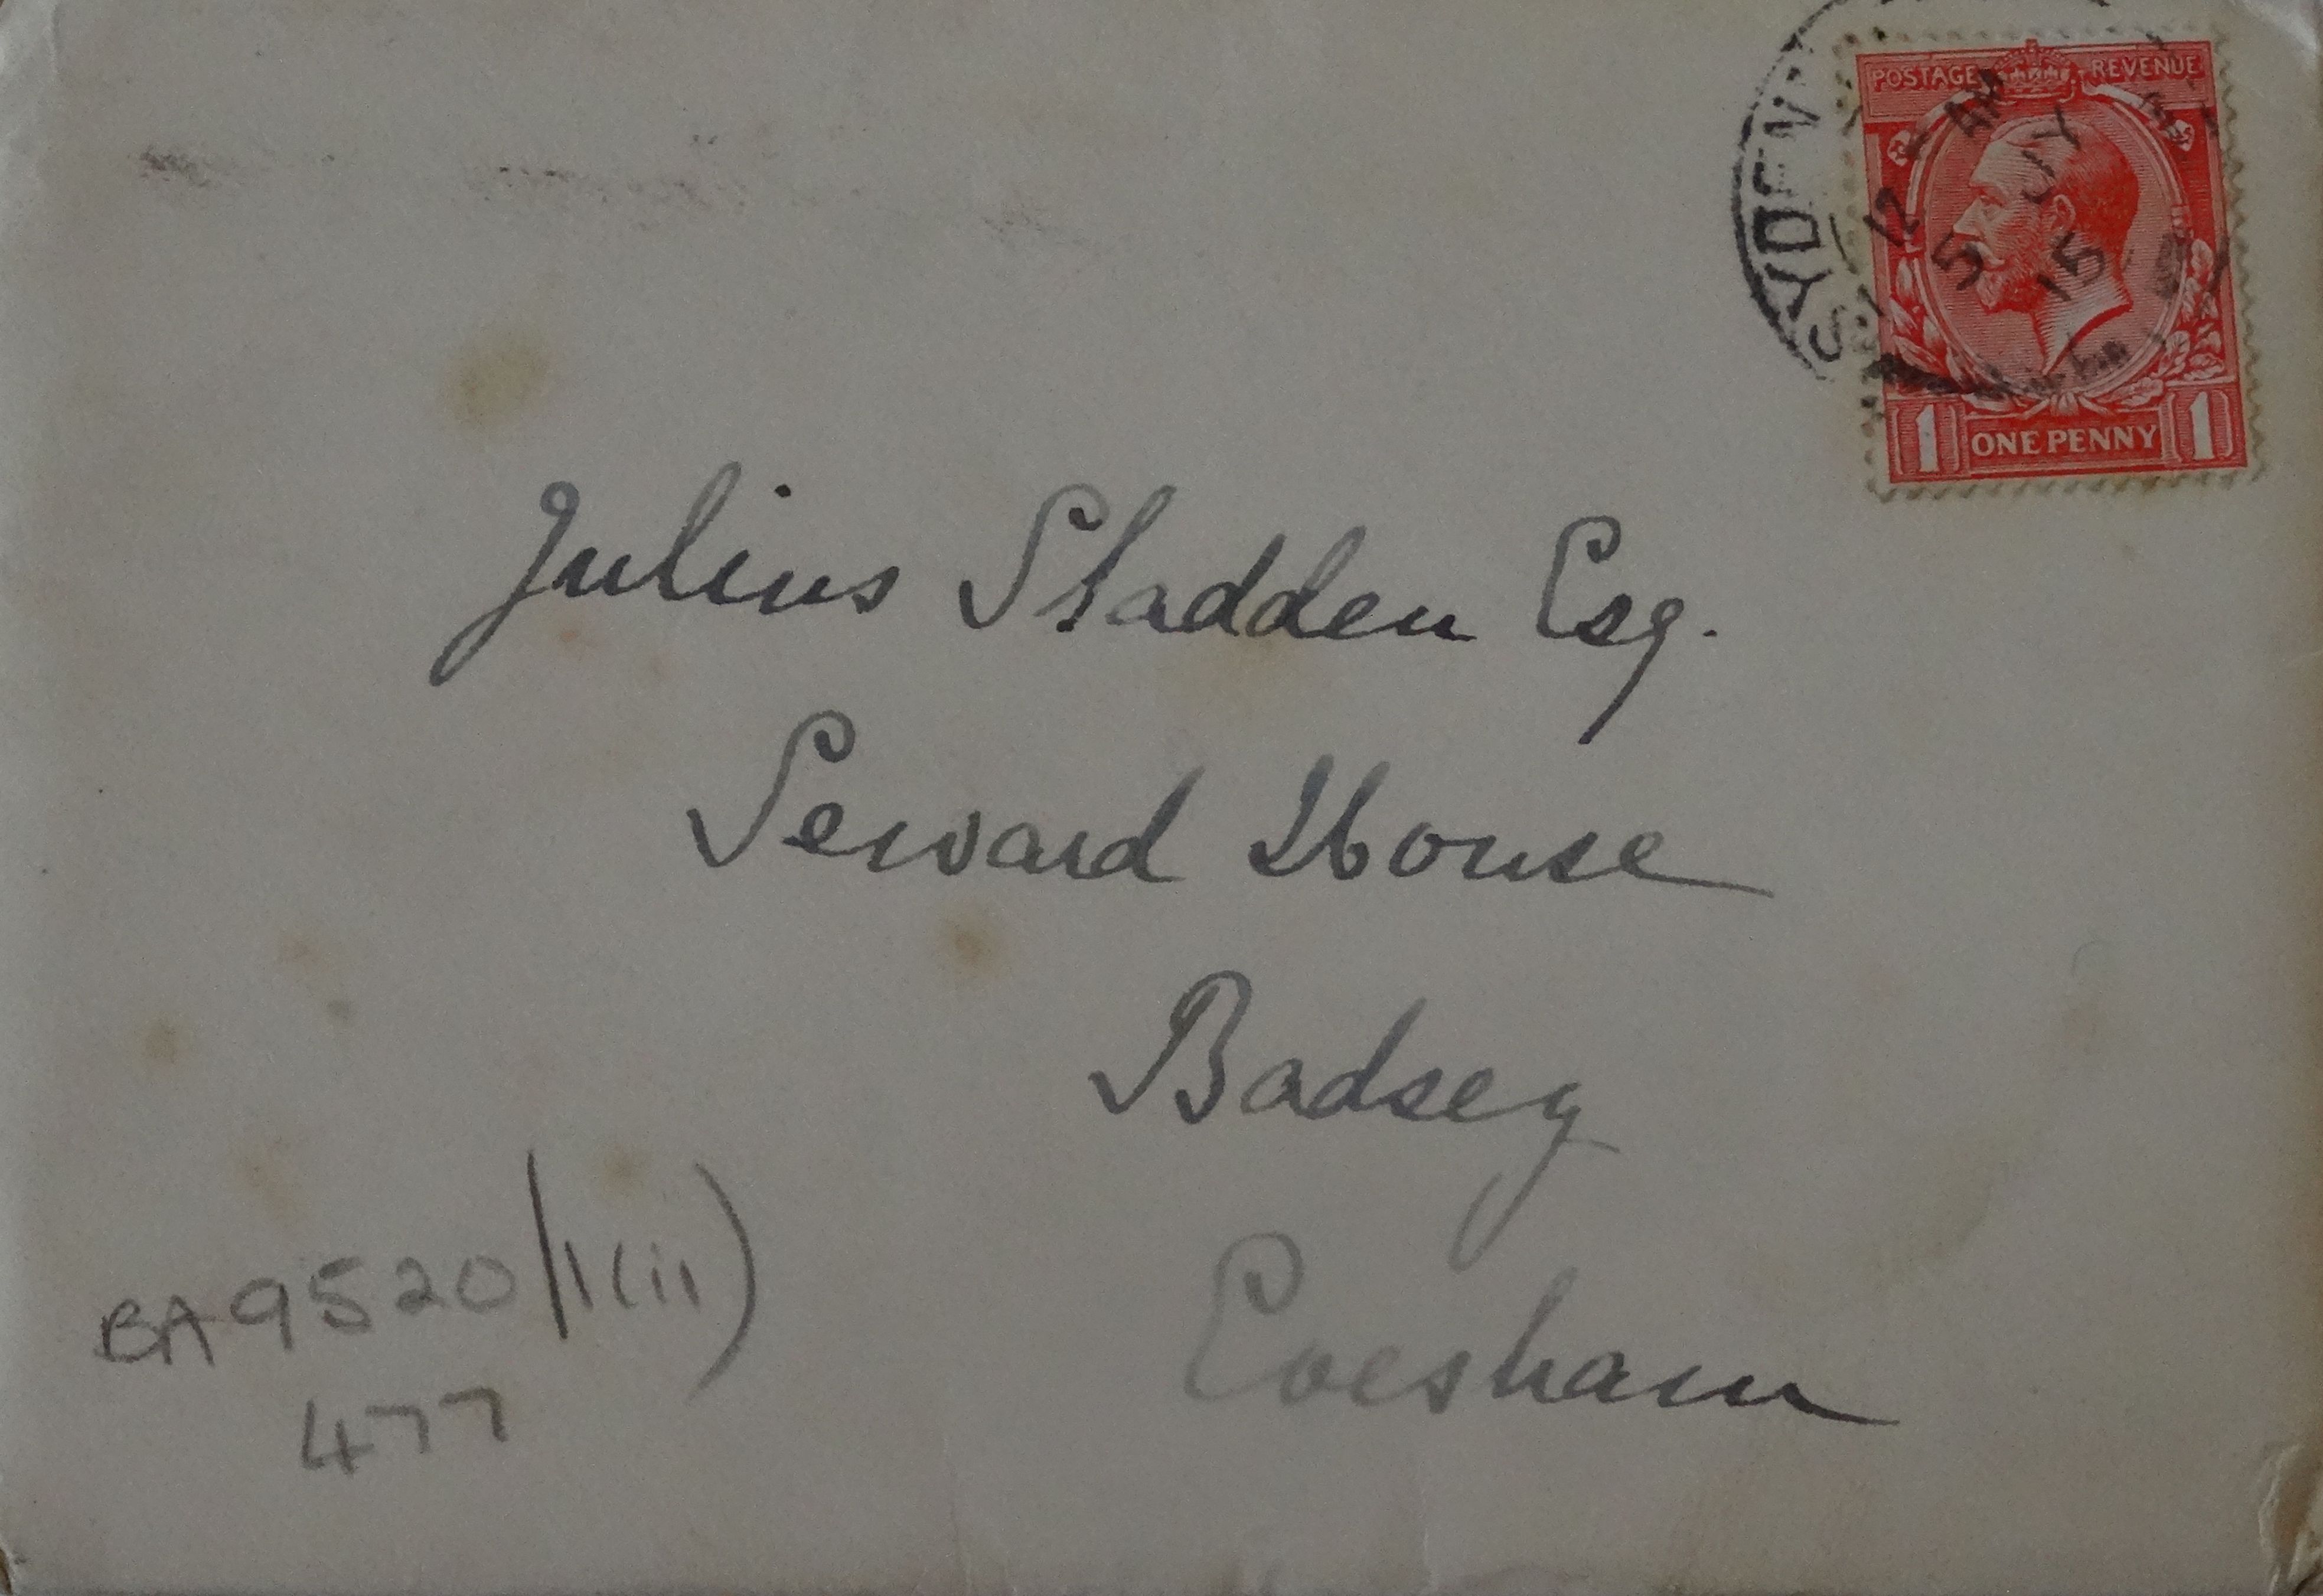 POSTAGE REVENUE
SYDEN
12 AM
5 JY
15
1 ONE PENNY 1
Julius Sladden Esq.
Seward House
Badsey
Evesham
BA9520/1(ii)
477